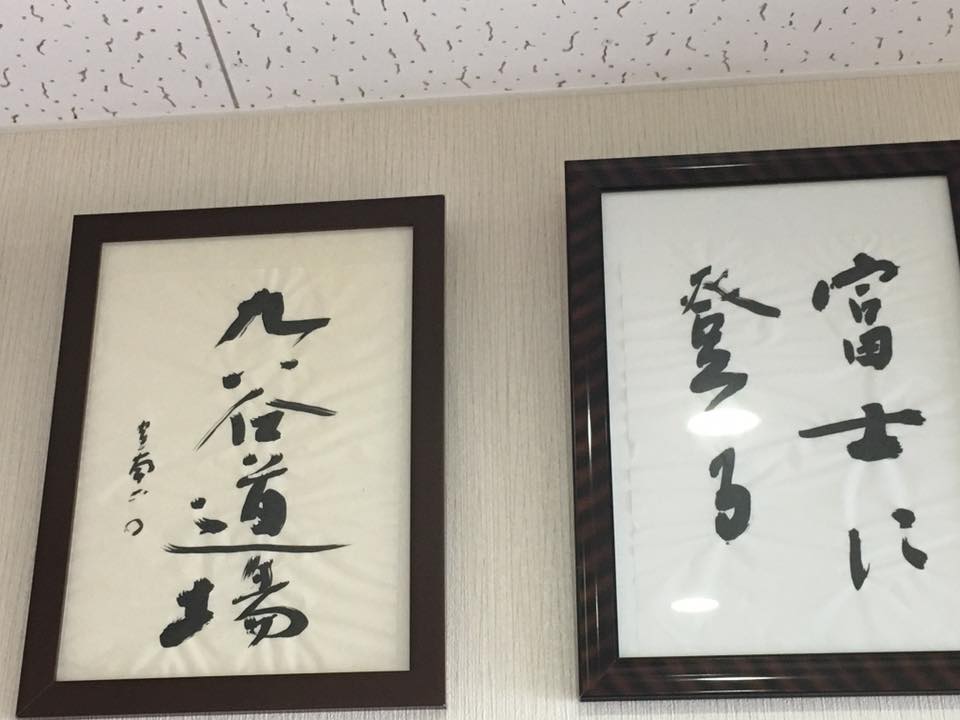 富士に
登る
九谷道場